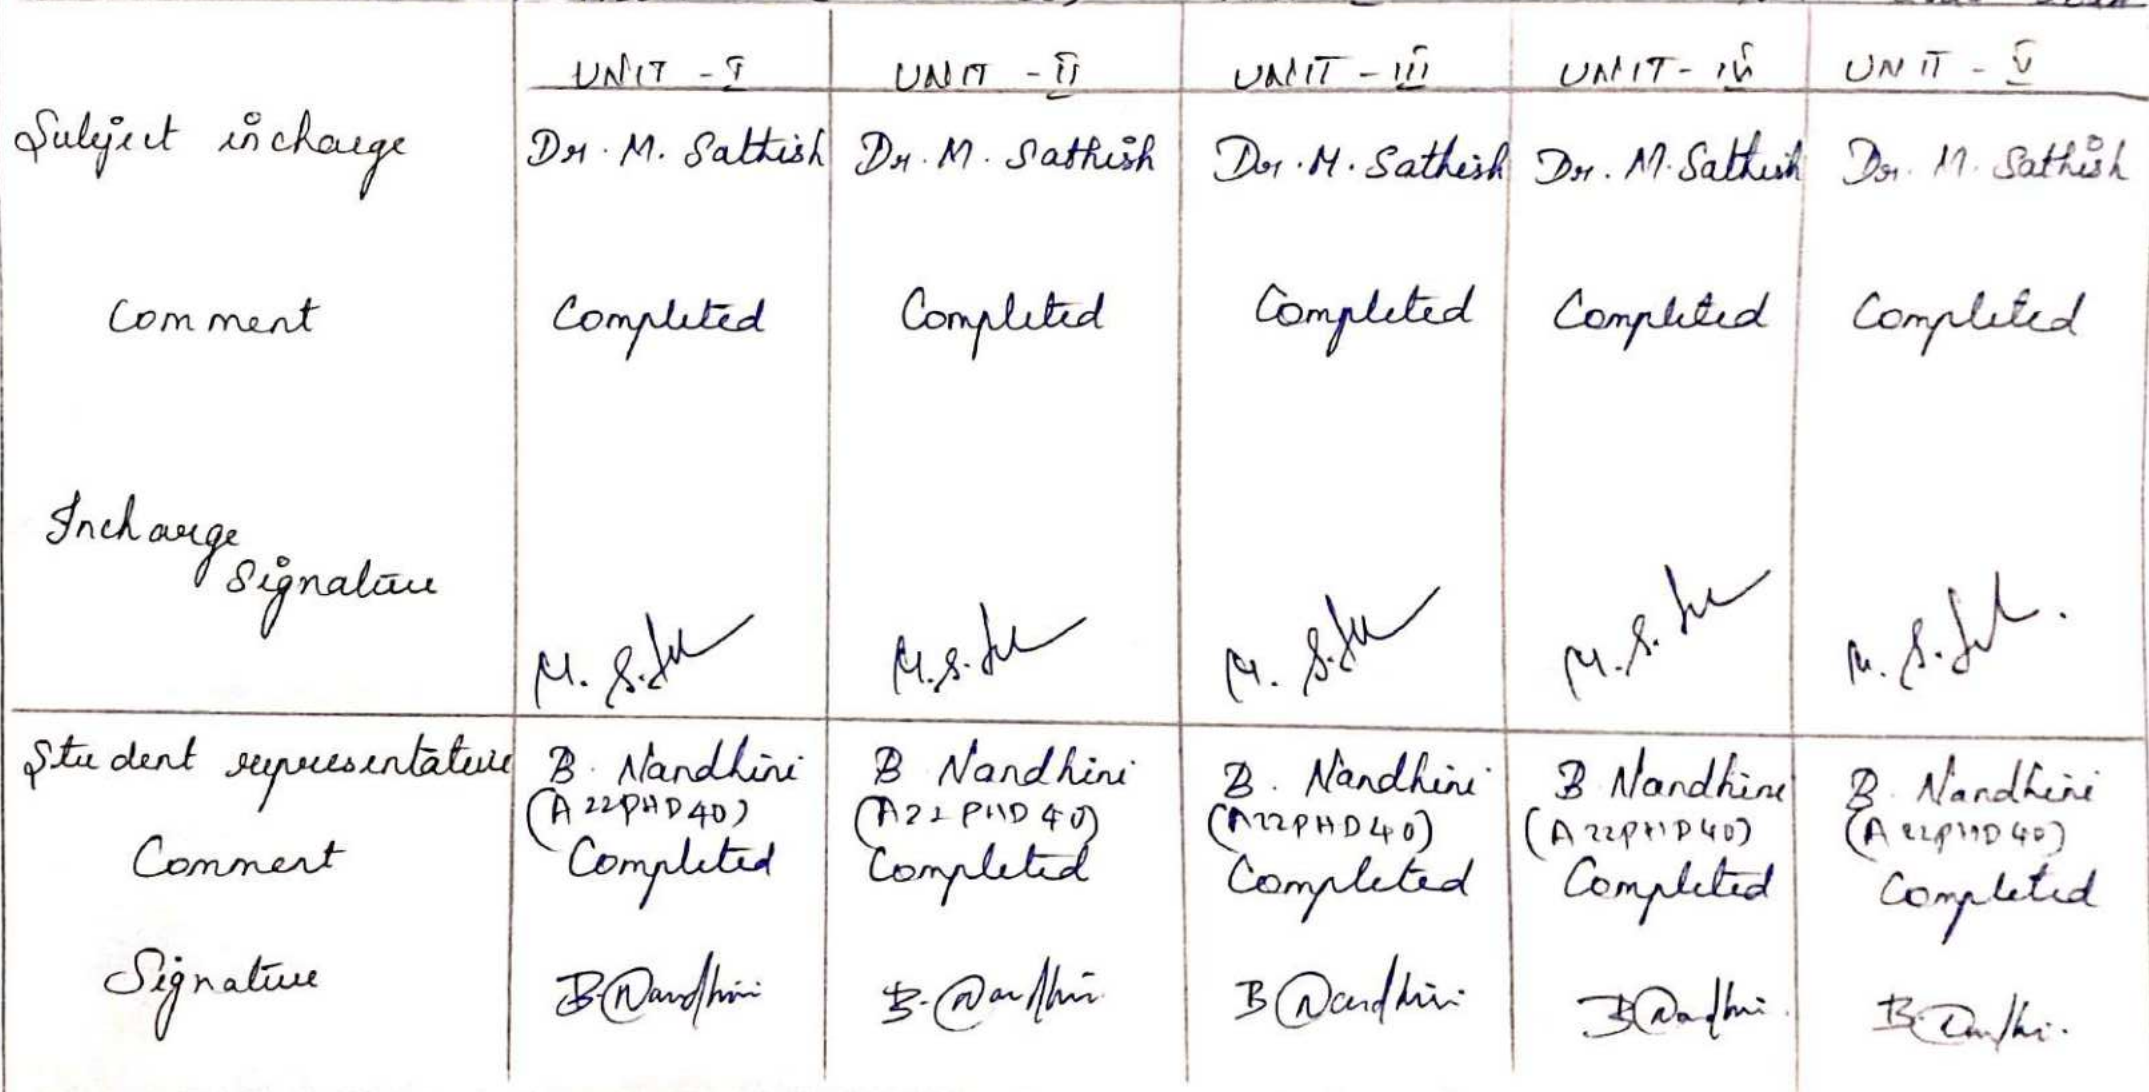 UNIT - I UNIT - II UNIT - III UNIT - IV UNIT - V
Subject incharge Dr. M. Sathish Dr. M. Sathish Dr. M. Sathish Dr. M. Sathish Dr. M. Sathish
Comment Completed Completed Completed Completed Completed
Incharge
Signature
Student representative B. Nandhini B Nandhini B. Nandhini B Nandhini B. Nandhini
(A22PHD40) (A22PHD40) (A22PHD40) (A22PHD40) (A22PHD40)
Comment Completed Completed Completed Completed Completed
Signature B. Nandhini B. Nandhini B Nandhini B Nandhini